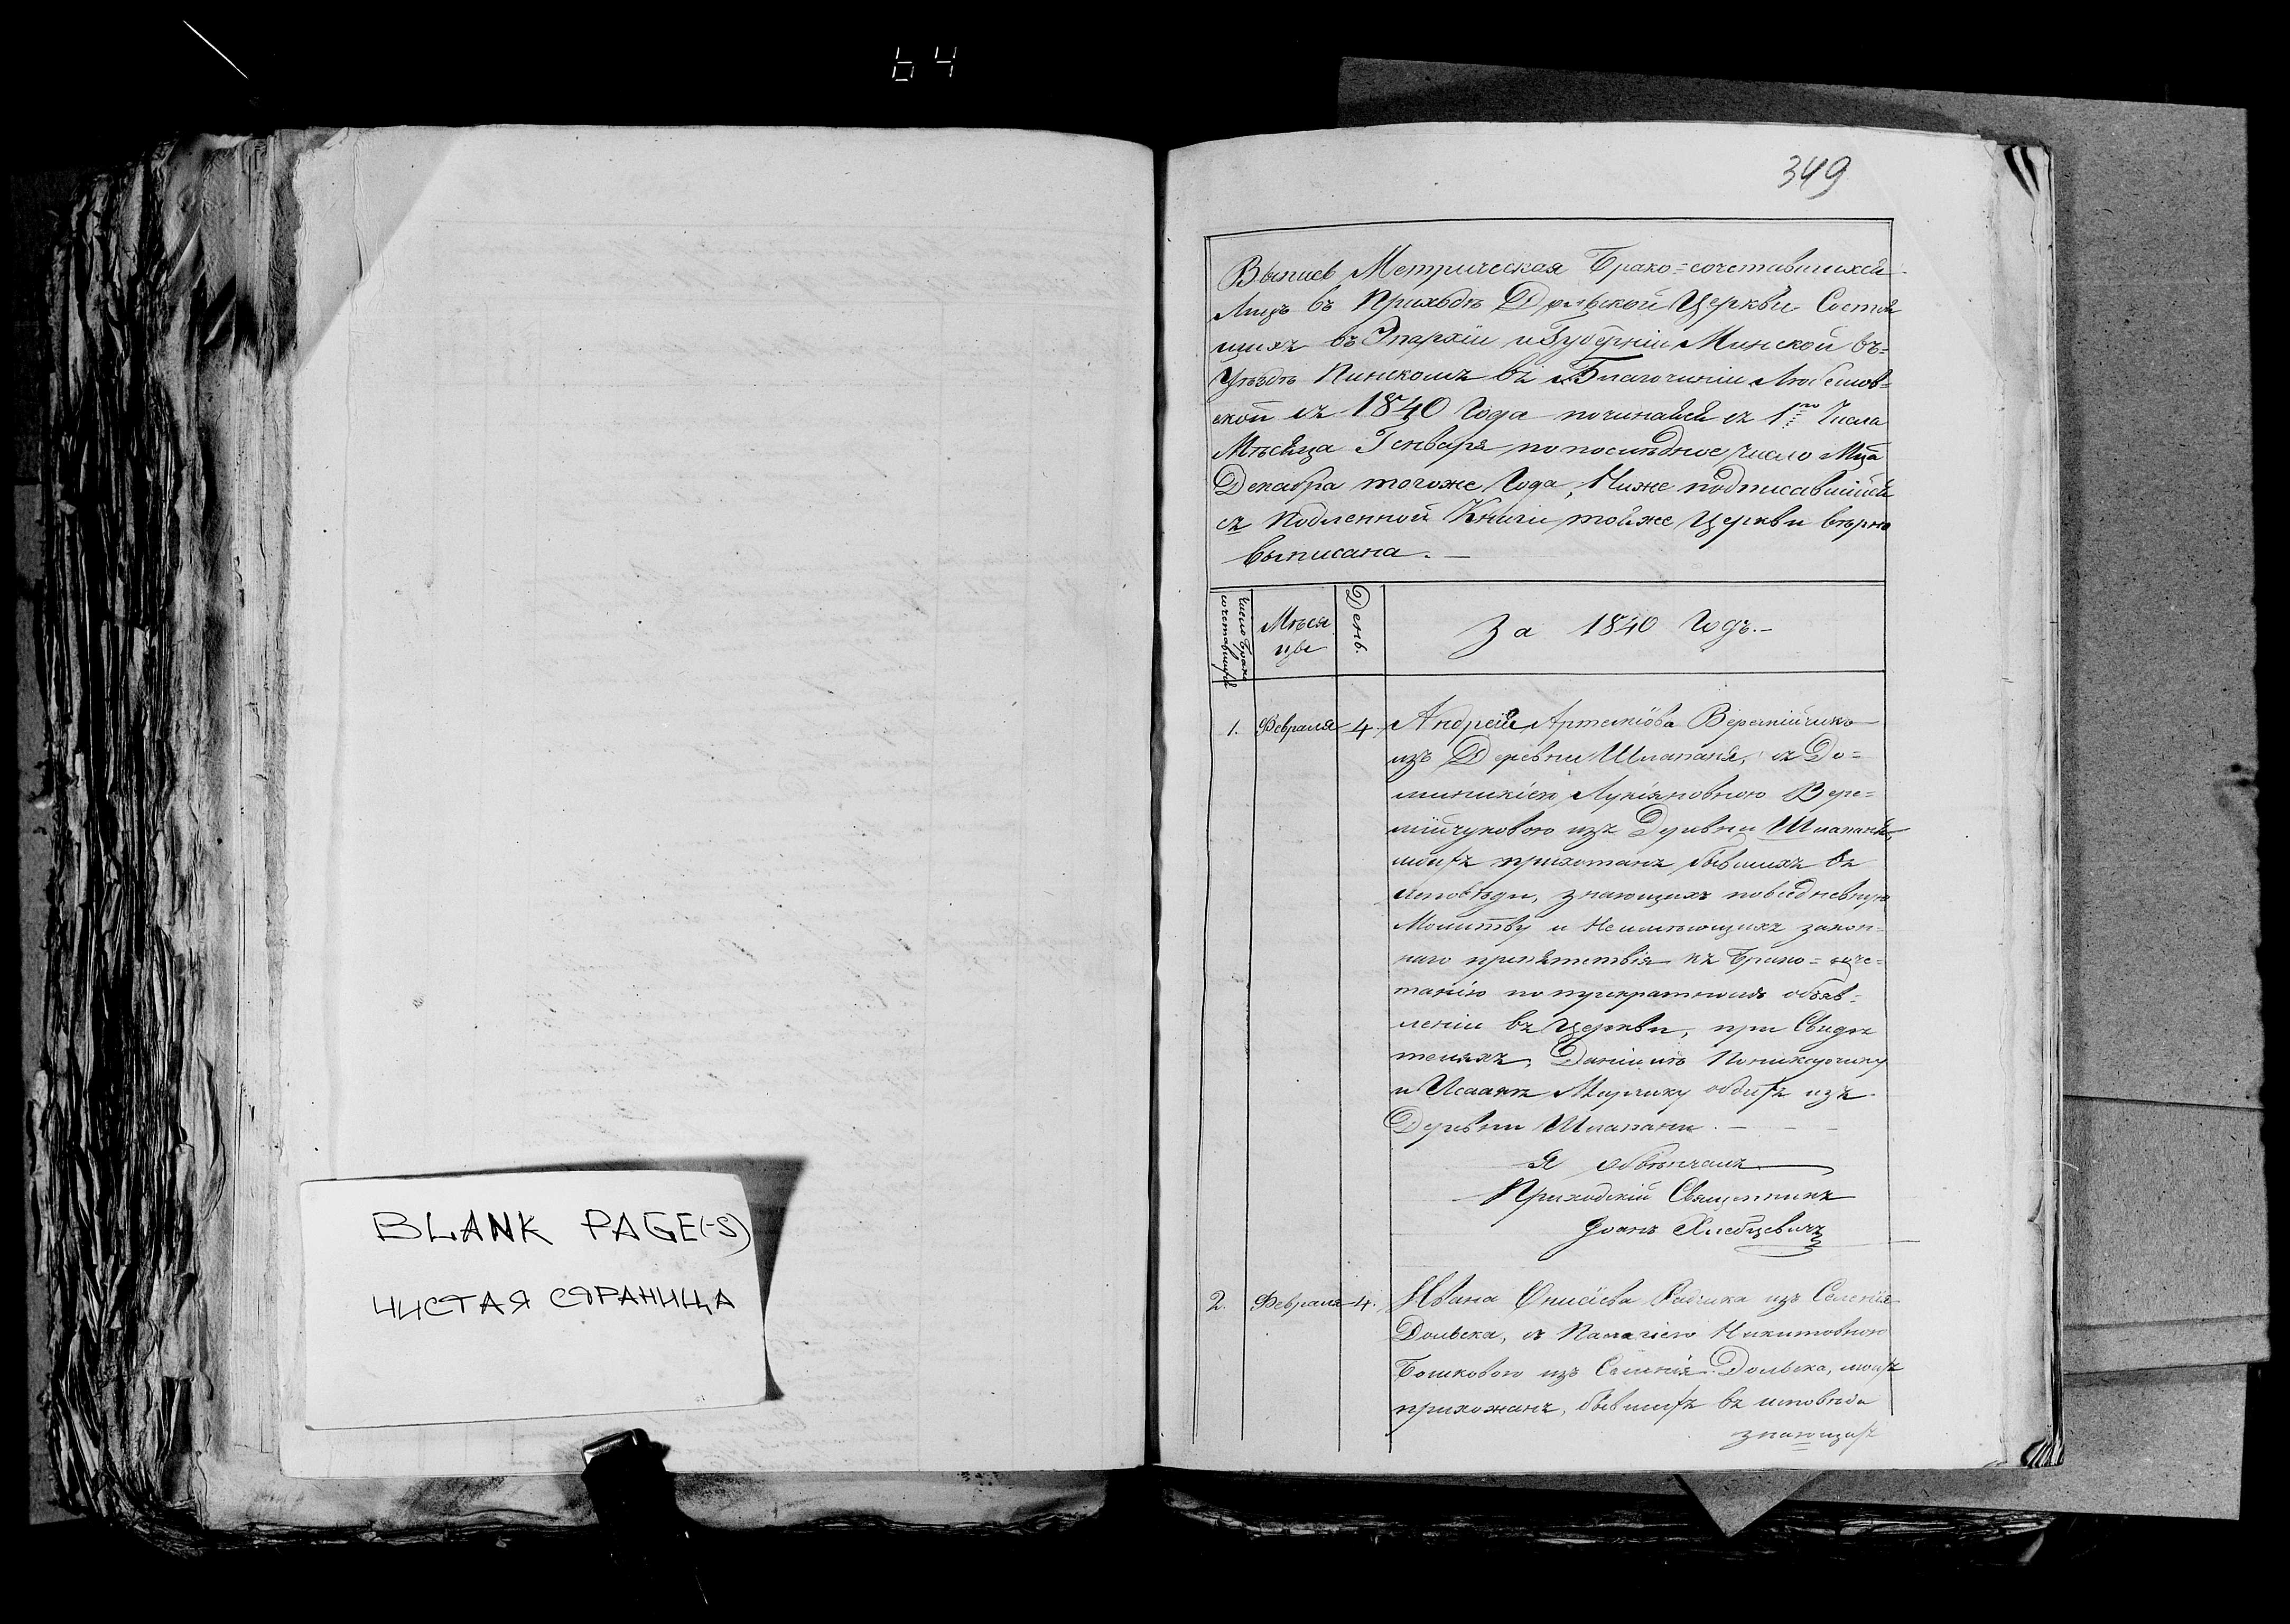 64
349
Выпись Метрическая Брако=сочетавшихся
Лицъ въ Приходѣ Дольской Церкви Состоя
щихъ въ Эпархіи и Губерніи Минской въ=
Уѣздѣ Пинскомъ въ Благочиніи Любешов=
ской съ 1840 Года починаясь съ 1го Числа
Мѣсяца Генваря по послѣдное число Мца
Декабра тогоже Года, Ниже подписавшійся
съ Подленной Книги тоейже Церкви вѣрно
выписана.—
Число Брако сочетавшихся
Мѣся
цы
День.
За 1840 Годъ.—
1. Февраля 4. Андрей Артеміова Веремійчикъ
изъ Деревни Шлапаня, съ До=
миникіею Лукіяновною Вере=
мійчуковою изъ Деревни Шлапаня,
моихъ прихотанъ бывшихъ въ
исповѣди, знающихъ повседневную
Молитву и Неимѣющихъ закон=
наго препятствія къ Брако=соче=
танію по трикратномъ объяв=
леніи въ Церкви, при Свидѣ
теляхъ, Даніилѣ
и Исаакѣ Мирчику обоихъ изъ
Деревни Шлапани. — — —
Я обвѣнчалъ
Приходскій Священникъ
Іоанъ Хлебцевичъ
2. Февраля 4. Ивана изъ Селенія
Дольска, съ Палагіею Никитовною
Бошковою изъ Селенія Дольска, моихъ
прихожанъ, бывшихъ въ исповѣди
знающихъ
BLANK PAGE(-S)
ЧИСТАЯ СТРАНИЦА